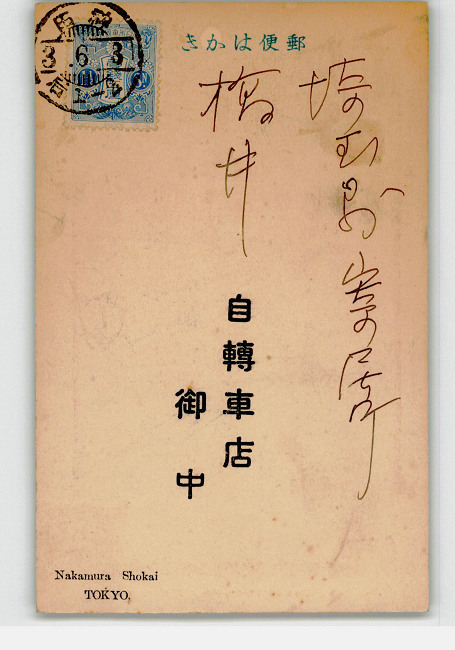 郵便はかき
埼玉県寄居町
井
自轉車店
御中
Nakamura Shokai
TOKYO.
3 6 3